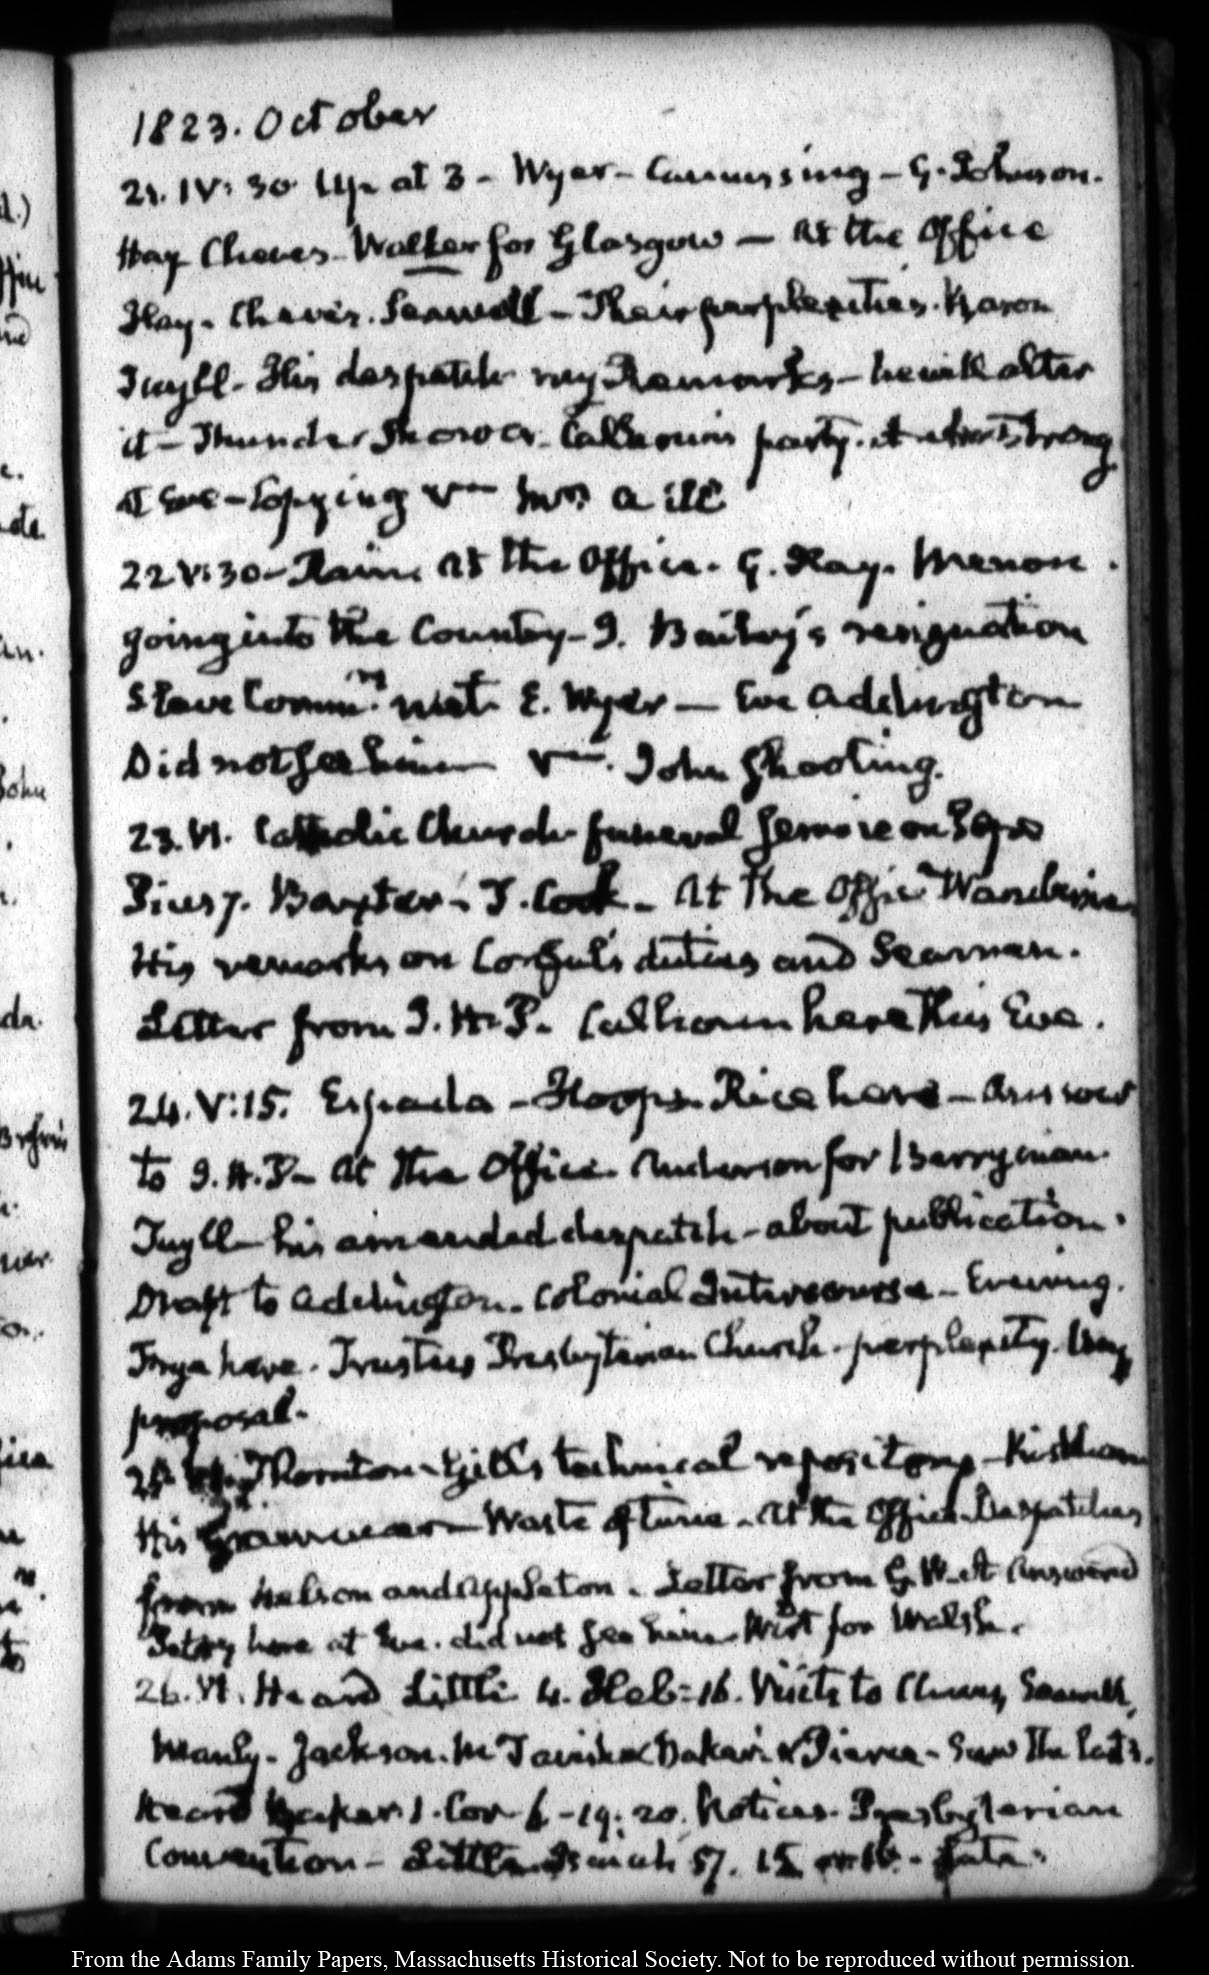 1823. October
21. IV: 30 Up at 3 - Wyer - Canvassing - G. Johnson.
Hay Cheves - Walker for Glasgow — At the Office
Hay. Cheves. Seawell - Their perplexities. Baron
Tuyll - His despatch my Remarks - he will alter
it - Thunder Shower. Calhoun's party.
Eve - Copying
22 V: 30 - Rain. At the Office. G. Hay.
going into the Country - I. Bailey's resignation
Slave Commn. E. Wyer — Eve Addington
Did not see him John Shooting.
23. VI. Catholic Church funeral Service on Pope
Pius 7. Baxter - T. Cook - At the Office
His remarks on Consul's duties and Seamen.
Letter from Calhoun here this Eve.
24. V: 15. Espada - Hoops. Rice here - Answer
to At the Office. Anderson for Berryman.
Tuyll - his amended despatch - about publication.
Draft to Addington. Colonial Intercourse - Evening.
here. Trustees Presbyterian Church. perplexity. My
proposal.
25. Thornton - Gill's technical repository - Kirkham
His Grammar - Waste of time - At the Office. Despatches
from Nelson and Appleton. Letter from G. W. A answered
here at Eve. did not see him. Wirt for Walsh.
26. VI. Heard Little 4. Heb: 16. Visits to Cheves, Seawell,
Manly. Jackson. McTavish & Baker & Pierce - Saw the last 3.
Heard Baker 1. Cor 6 - 19: 20. Notices. Presbyterian
Convention - Little Isaiah 57. 15 - Late.